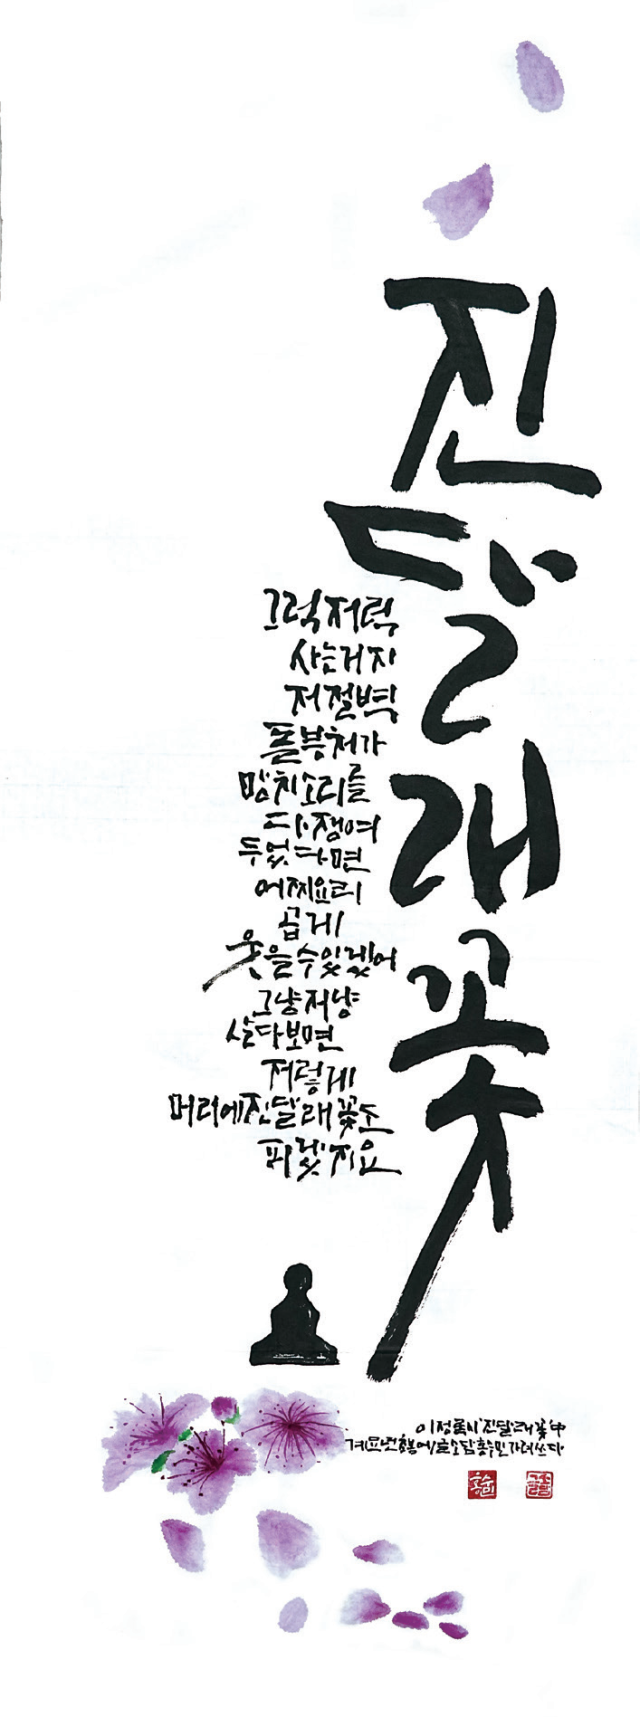 진달래꽃
그럭저럭
사는거지
저절벽
돌부처가
망치소리를
다쟁여
두었다면
어찌요리
곱게
웃을수있겠어
그냥저냥
살다보면
저렇게
머리에진달래꽃도
피겠지요
이정록시진달래꽃中